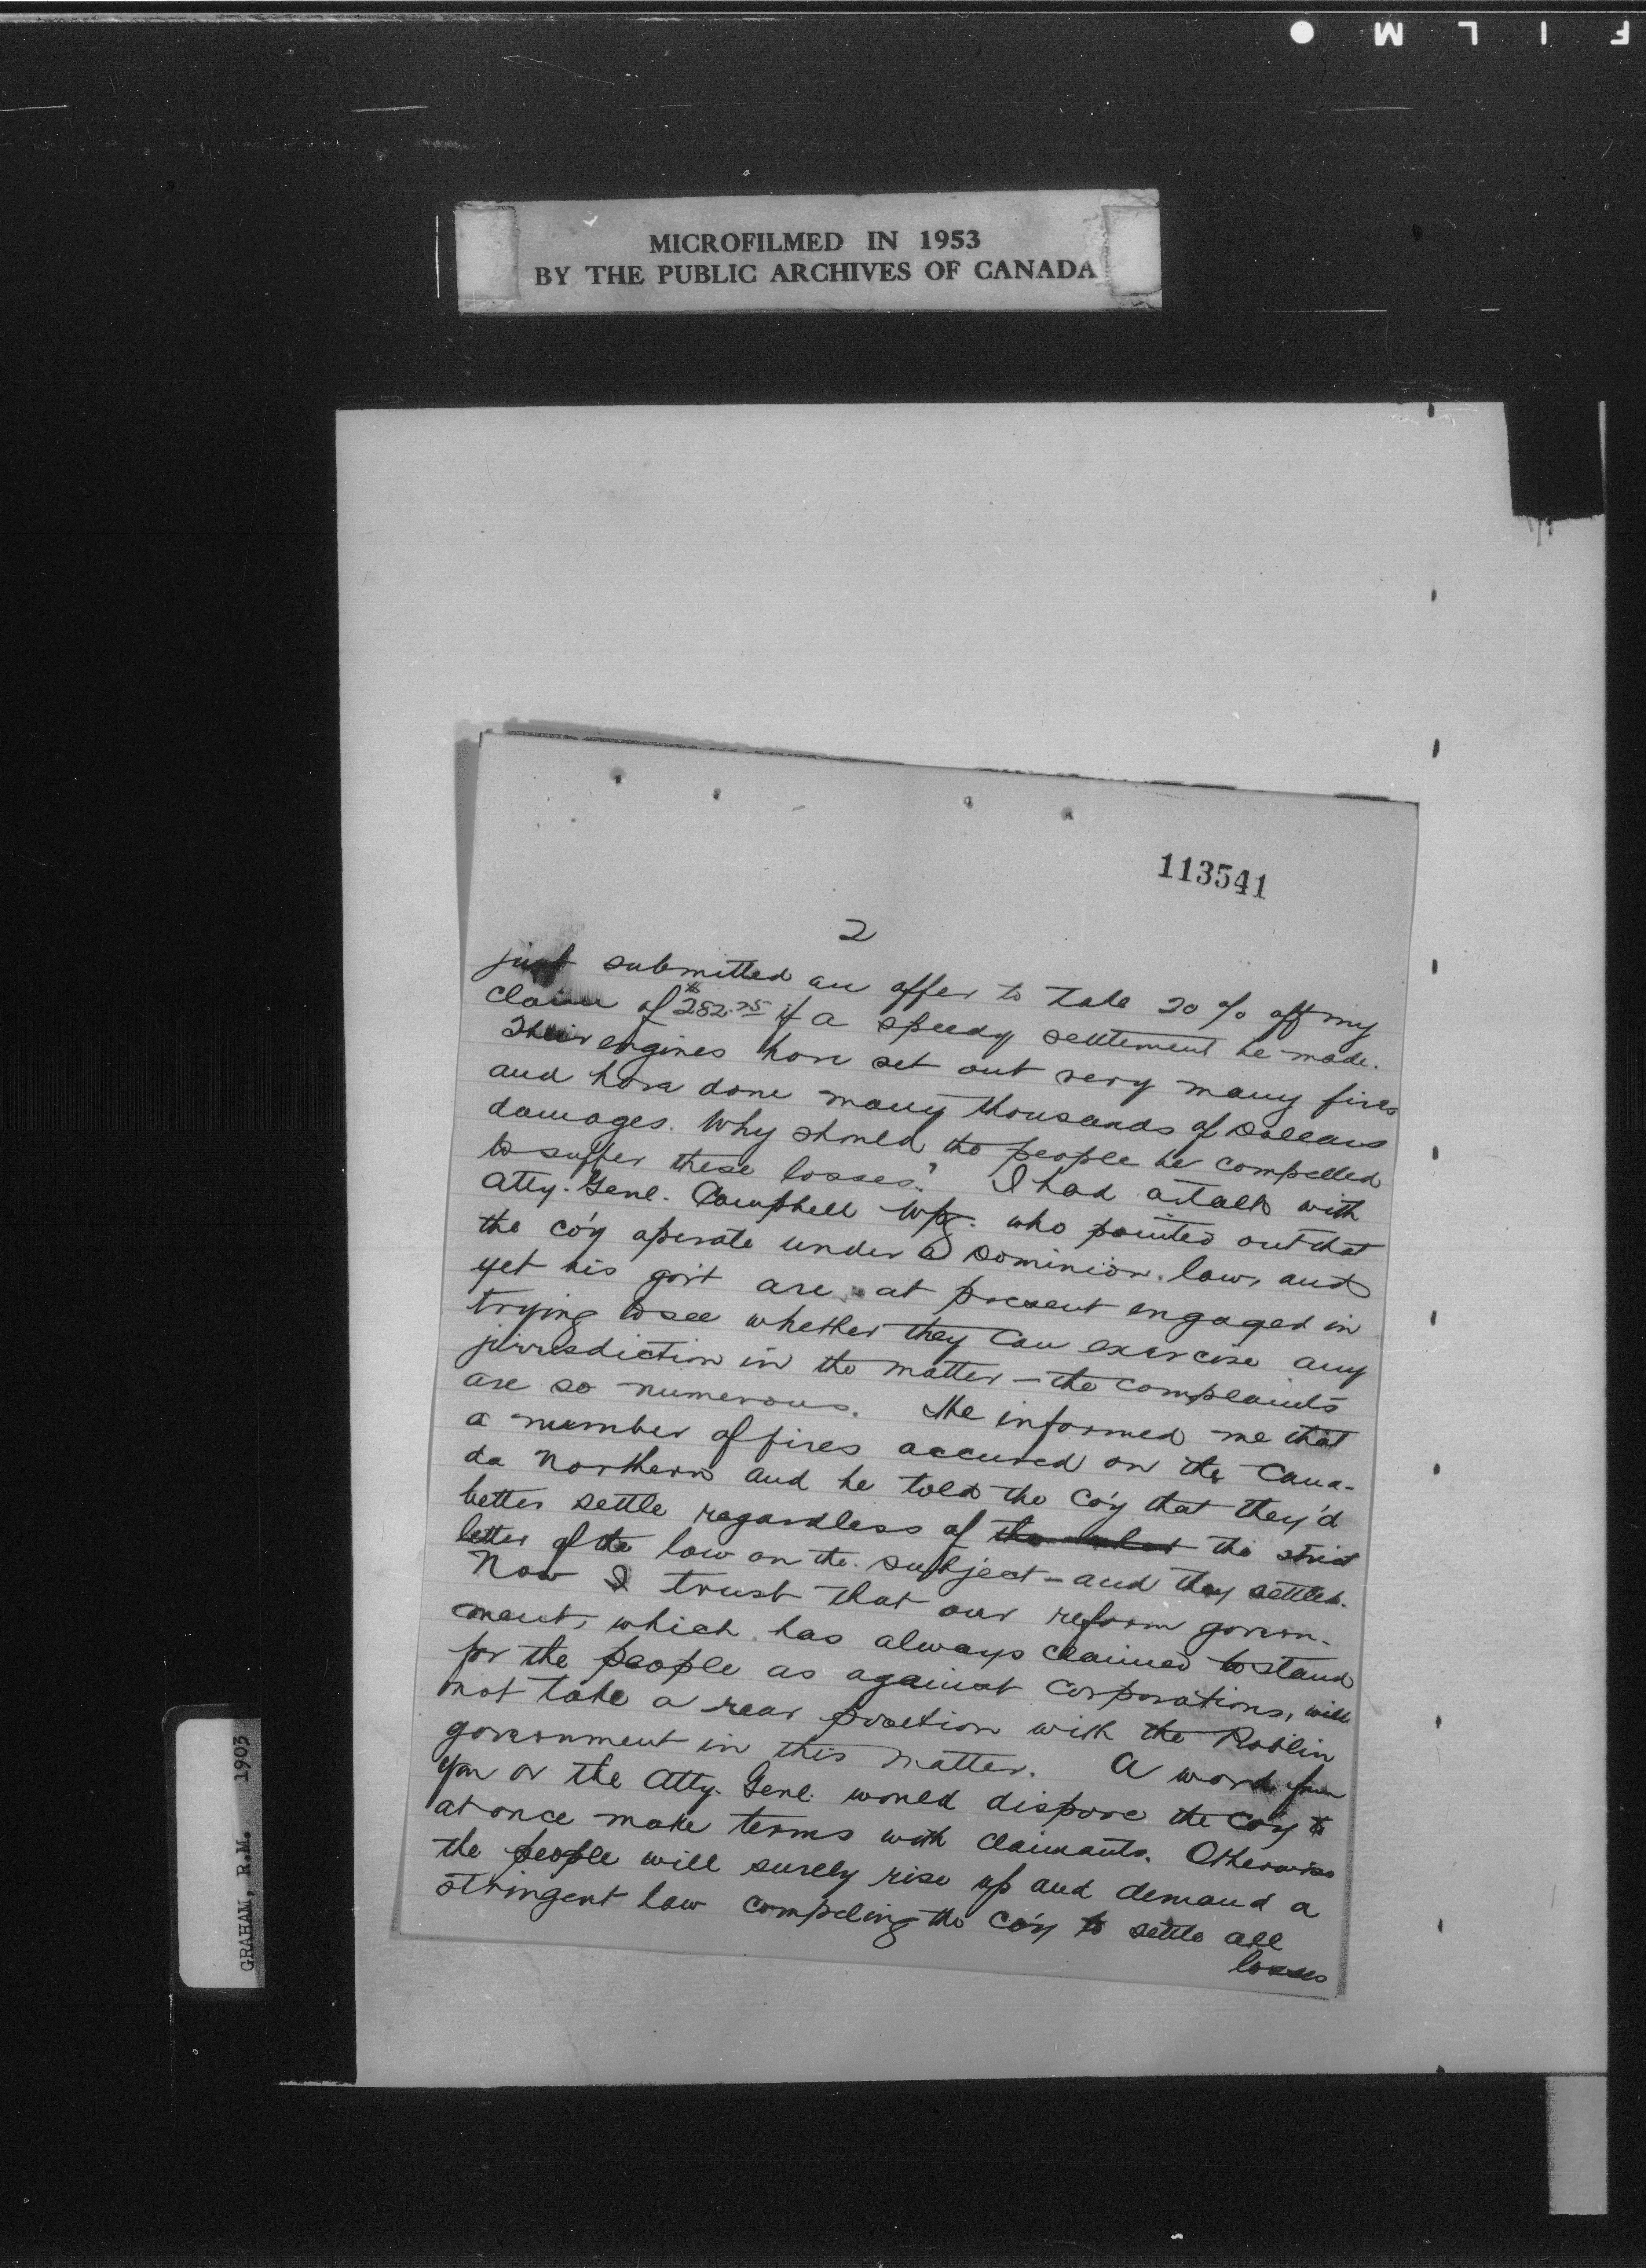 FILM
MICROFILMED IN 1953
BY THE PUBLIC ARCHIVES OF CANADA
113541
2
just submitted an offer to take 20 % off my
claim of $282.75 if a speedy settement be made.
Their engines have set out very many fires
and have done many thousands of Dollars
damages. Why should the people be compelled
to suffer these losses? I had a talk with
Atty. Genl. Campbell Wpg. who pointed out that
the co'y operate under a Dominion law, and
yet his gov't are at present engaged in
trying to see whether they can exercise any
jurrisdiction in the matter - the complaints
are so numerous. He informed me that
a number of fires occured on the Cana-
da Northern and he told the co'y that they'd
better settle regardless of the the strict
letter of the law on the subject - and they settled.
Now I trust that our reform govern-
ment, which has always claimed to stand
for the people as against corporations, will
not take a rear position with the Roblin
government in this matter. A word from
you or the Atty. Genl. would dispose the Co'y to
at once make terms with claimants. Otherwise
the people will surely rise up and demand a
stringent law compeling the co'y to settle all
losses
GRAHAM, R.M. 1903